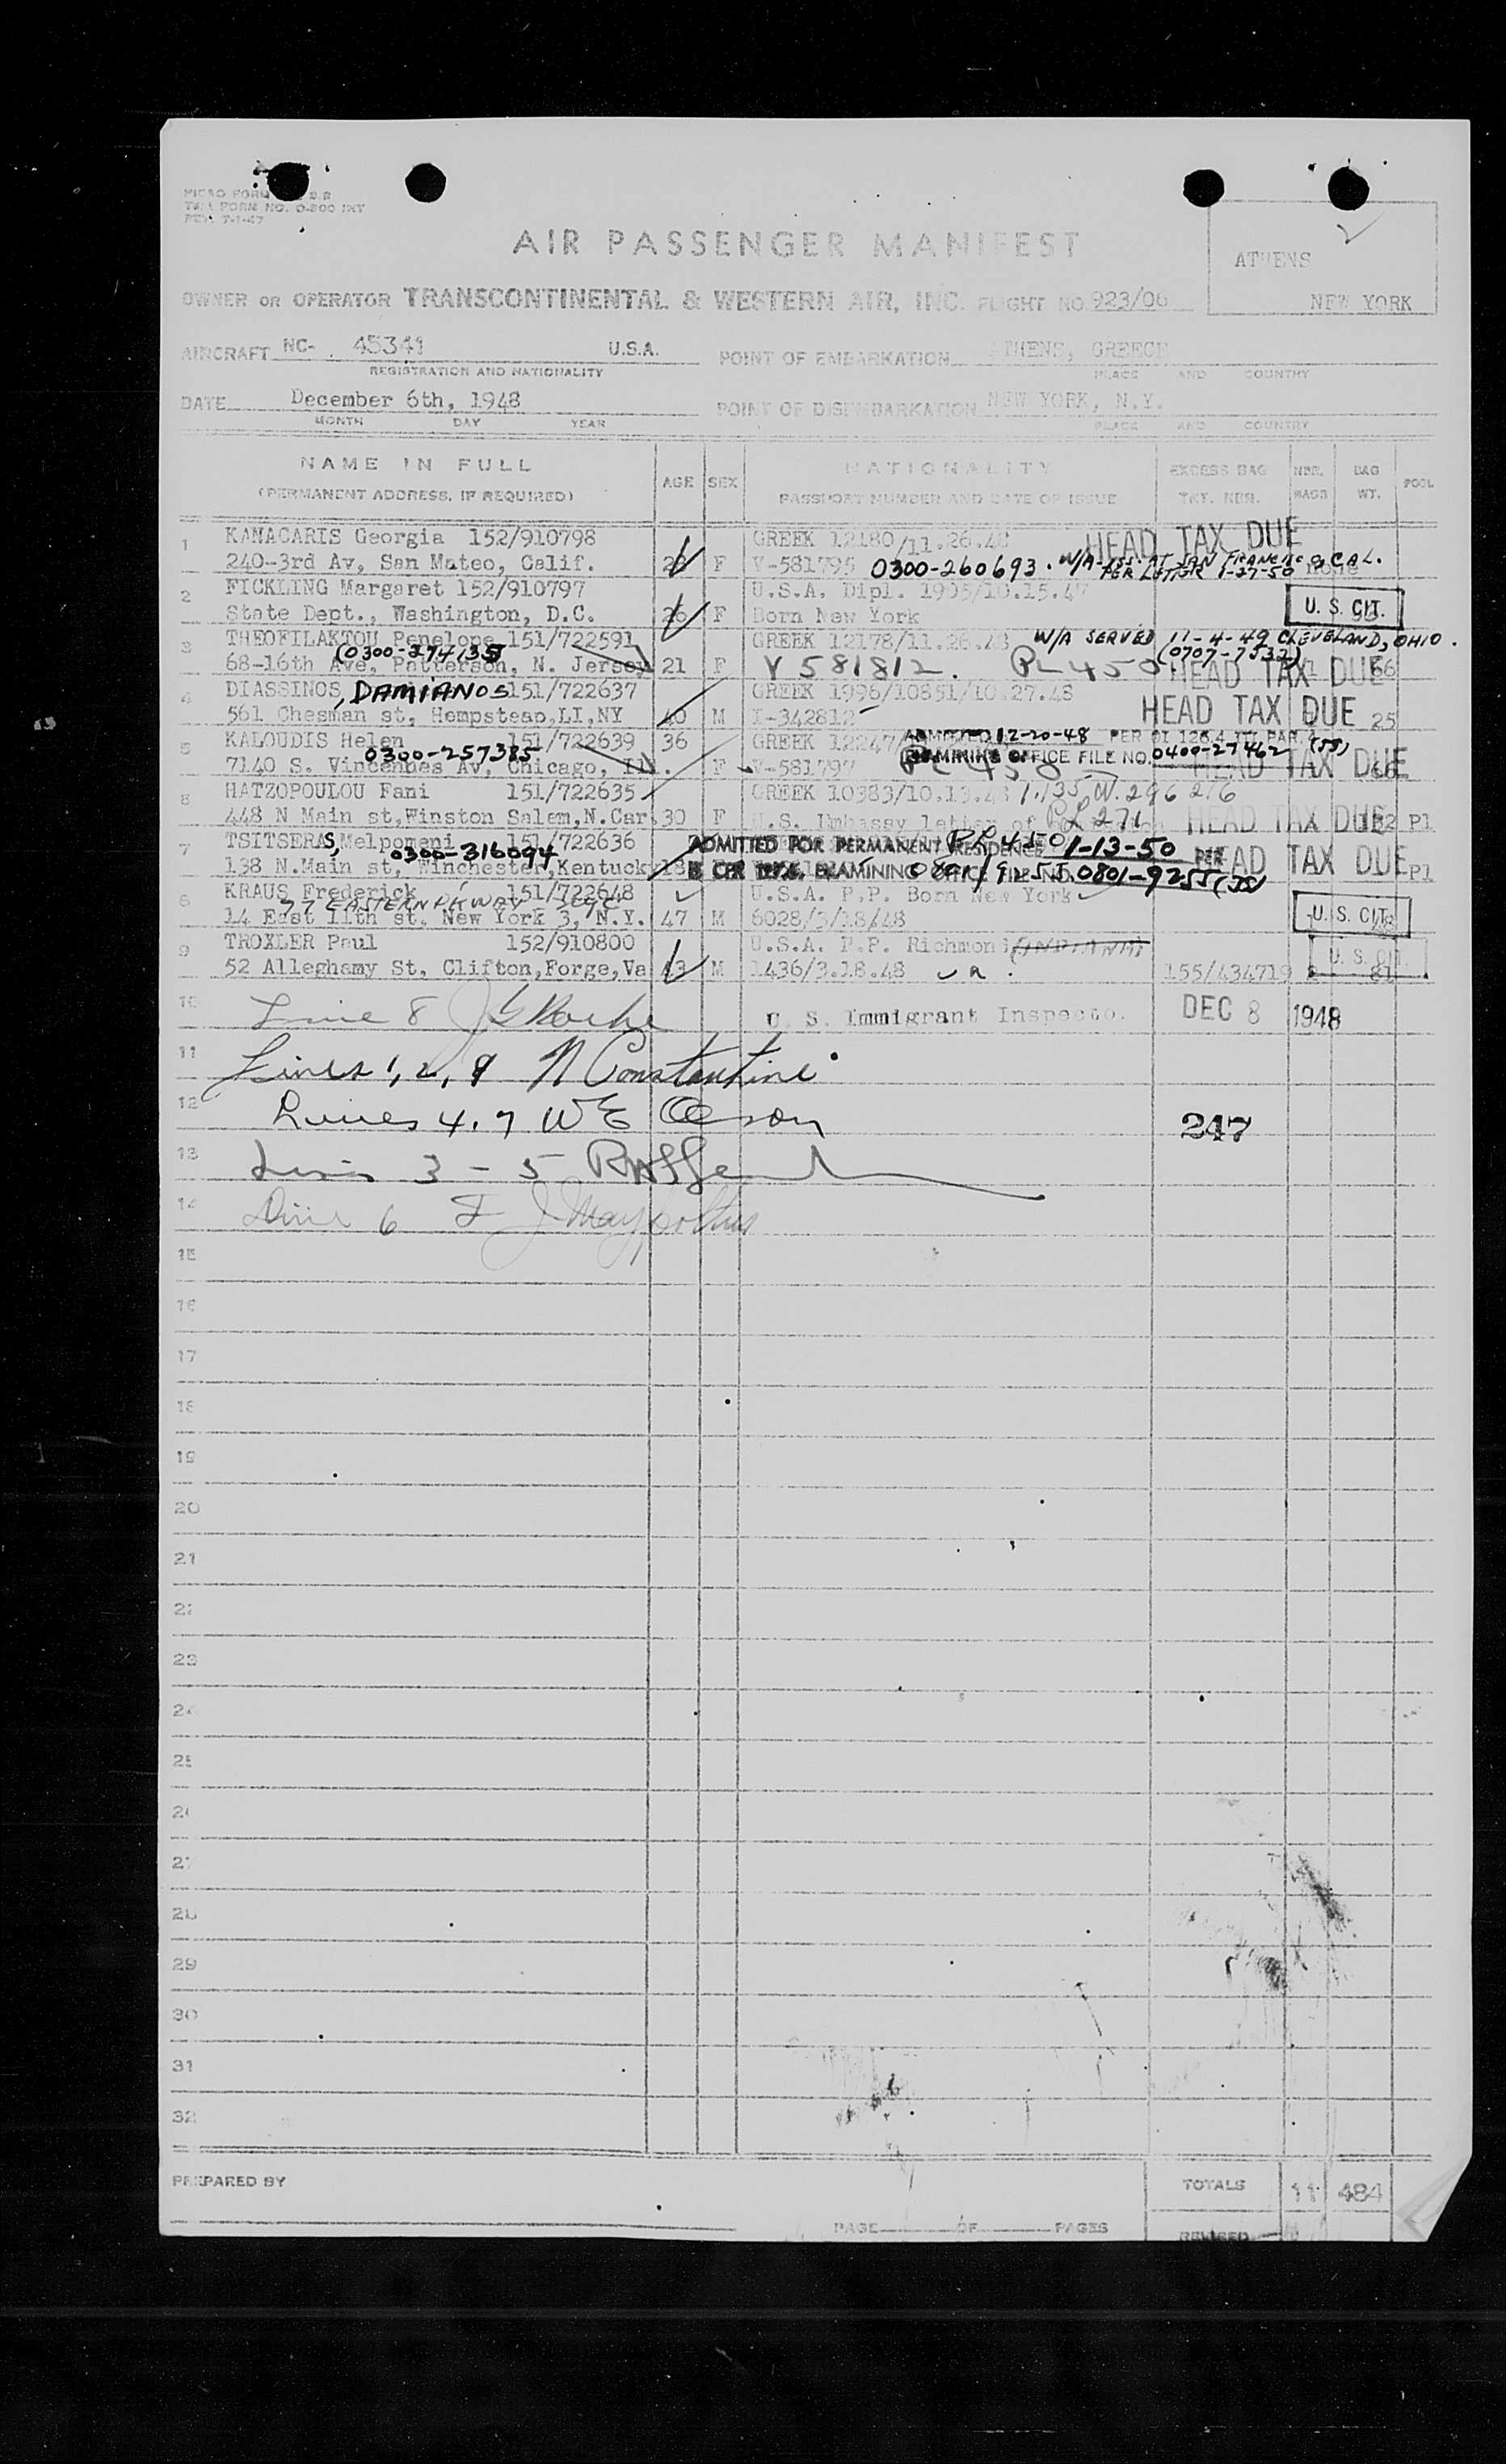 TWA FORM NO. O-800 INT
REV. 7-1-47
AIR PASSENGER MANIFEST
ATHENS
NEW YORK
OWNER OR OPERATOR TRANSCONTINENTAL & WESTERN AIR, INC. FLIGHT NO. 923/06
AIRCRAFT NC- 45341 U.S.A. POINT OF EMBARKATION ATHENS, GREECE
REGISTRATION AND NATIONALITY PLACE AND COUNTRY
DATE December 6th, 1948 POINT OF DISEMBARKATION NEW YORK, N.Y.
MONTH DAY YEAR PLACE AND COUNTRY
NAME IN FULL AGE SEX NATIONALITY EXCESS BAG NBR. BAG POOL
(PERMANENT ADDRESS, IF REQUIRED) PASSPORT NUMBER AND DATE OF ISSUE TKT. NBR. BAGS WT.
1 KANACARIS Georgia 152/910798 GREEK 12180/11.26.48 HEAD TAX DUE
240-3rd Av, San Mateo, Calif. F V-581795 0300-260693. W/A ISS. AT SAN FRANCISCO, CAL. PER LETTER 1-27-50 None
2 FICKLING Margaret 152/910797 U.S.A. Dipl. 1905/10.15.47
State Dept., Washington, D.C. 26 F Born New York U. S. CIT.
3 THEOFILAKTOU Penelope 151/722591 GREEK 12178/11.26.48 W/A SERVED 11-4-49 CLEVELAND, OHIO.
(0300-274135 (0707-7532)
68-16th Ave. Patterson, N. Jersey 21 F V 581812. PL 450 HEAD TAX DUE 66
4 DIASSINOS, DAMIANOS 151/722637 GREEK 1996/10851/10.27.48
561 Chesman st, Hempsteap,LI,NY 40 M I-342812 HEAD TAX DUE 25
5 KALOUDIS Helen 151/722639 36 GREEK 12247 ADMITTED 12-20-48 PER OI 126.4 III PAR. 4
0300-257385 EXAMINING OFFICE FILE NO. 0400-27462 (JS)
7140 S. Vincennes Av, Chicago, Ill. F V-581797 PL 450 HEAD TAX DUE
6 HATZOPOULOU Fani 151/722635 GREEK 10383/10.13.48
448 N Main st,Winston Salem,N.Car. 30 F U.S. Embassy letter of PL 271 HEAD TAX DUE Pl
7 TSITSERAS, Melpomeni 151/722636 PL 450
0300-316094 ADMITTED FOR PERMANENT RESIDENCE 1-13-50 PER
138 N.Main st, Winchester,Kentucky 18 EXAMINING OFFICE FILE NO. 0801-9255 (JS) HEAD TAX DUE Pl
8 KRAUS Frederick 151/722648 U.S.A. P.P. Born New York
77 EASTERN PKWAY
14 East 11th st, New York 3, N.Y. 47 M 6028/3/18/48 U. S. CIT.
9 TROXLER Paul 152/910800 U.S.A. P.P. Richmond (INDIANA) U. S. CIT.
52 Alleghamy St, Clifton,Forge,Va 43 M 1436/3.18.48 155/434719
10 Line 8 U. S. Immigrant Inspector. DEC 8 1948
11 Lines 1, 2, 9 N Constantine
12 Lines 4.7 W E Oeson 247
13 Lines 3 - 5
14 Line 6 F J
15
16
17
18
19
20
21
22
23
24
25
26
27
28
29
30
31
32
PREPARED BY TOTALS 11 484
PAGE OF PAGES REVISED